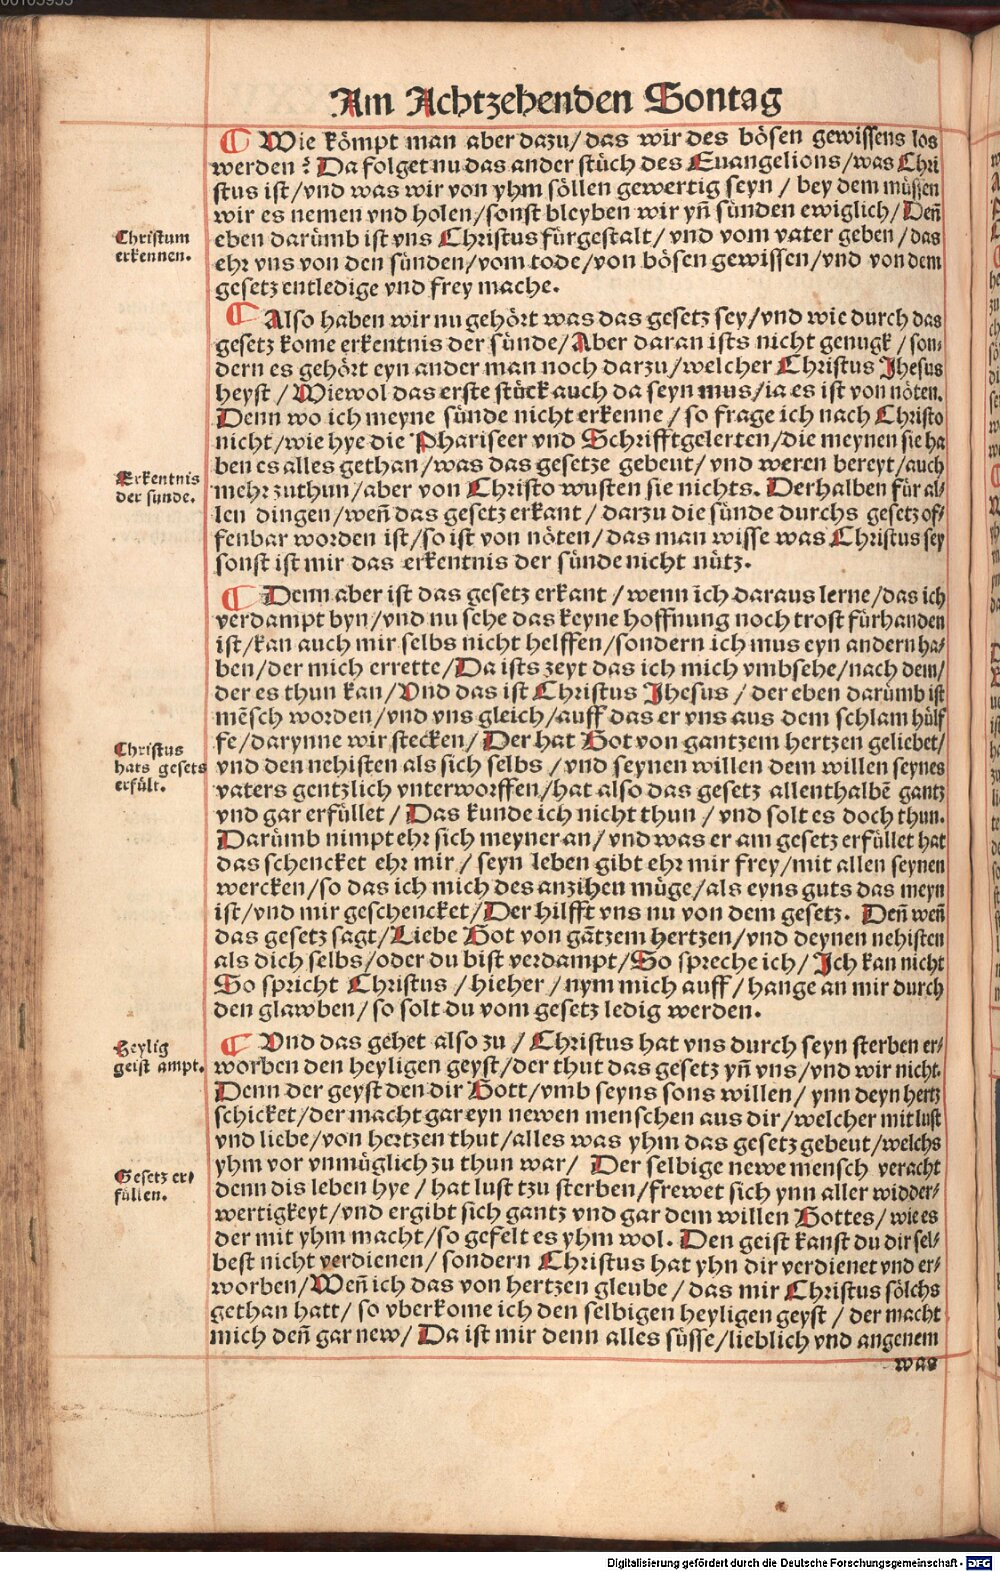 Am Achtzehenden Sontag
¶ Wie kömpt man aber dazu/ das wir des bösen gewissens los
werden? Da folget nu das ander stüch des Euangelions/was Chri
stus ist/vnd was wir von yhm söllen gewertig seyn / bey dem müssen
wir es nemen vnd holen/sonst bleyben wir yn̄ sünden ewiglich/ Deñ
Christum
erkennen.
eben darümb ist vns Christus fürgestalt/ vnd vom vater geben/das
ehr vns von den sünden/vom tode/von bösen gewissen/vnd von dem
gesetz entledige vnd frey mache.
¶ Also haben wir nu gehört was das gesetz sey/vnd wie durch das
gesetz kome erkentnis der sünde/Aber daran ists nicht genugk/son/
dern es gehört eyn ander man noch darzu/welcher Christus Jhesus
heyst / Wiewol das erste stück auch da seyn mus/ia es ist von nöten.
Denn wo ich meyne sünde nicht erkenne / so frage ich nach Christo
nicht/wie hye die Phariseer vnd Schrifftgelerten/die meynen sie ha
ben es alles gethan/was das gesetze gebeut/ vnd weren bereyt/auch
Erkentnis
der sunde.
mehr zuthun/aber von Christo wusten sie nichts. Derhalben für al/
len dingen/weñ das gesetz erkant / darzu die sünde durchs gesetz of/
fenbar worden ist/so ist von nöten/das man wisse was Christus sey
sonst ist mir das erkentnis der sünde nicht nütz.
¶ Denn aber ist das gesetz erkant / wenn ich daraus lerne/das ich
verdampt byn/vnd nu sche das keyne hoffnung noch trost fürhanden
ist/kan auch mir selbs nicht helffen/sondern ich mus eyn andern ha/
ben/der mich errette/Da ists zeyt das ich mich vmbsehe/nach dem/
der es thun kan/Vnd das ist Christus Jhesus / der eben darümb ist
mēsch worden/vnd vns gleich/auff das er vns aus dem schlam hülf
Christus
hats gesets
erfült.
fe/darynne wir stecken/ Der hat Got von gantzem hertzen geliebet/
vnd den nehisten als sich selbs / vnd seynen willen dem willen seynes
vaters gentzlich vnterworffen/hat also das gesetz allenthalbē gantz
vnd gar erfüllet / Das kunde ich nicht thun / vnd solt es doch thun.
Darümb nimpt ehr sich meyner an/ vnd was er am gesetz erfüllet hat
das schencket ehr mir / seyn leben gibt ehr mir frey/mit allen seynen
wercken/so das ich mich des anzihen müge/als eyns guts das meyn
ist/vnd mir geschencket/Der hilfft vns nu von dem gesetz. Deñ weñ
das gesetz sagt/Liebe Got von gātzem hertzen/vnd deynen nehisten
als dich selbs/oder du bist verdampt/So spreche ich/ Jch kan nicht
So spricht Christus / hieher / nym mich auff / hange an mir durch
den glawben/ so solt du vom gesetz ledig werden.
Heylig
geist ampt.
¶ Vnd das gehet also zu / Christus hat vns durch seyn sterben er/
worben den heyligen geyst/der thut das gesetz yn̄ vns/vnd wir nicht.
Denn der geyst den dir Gott/vmb seyns sons willen/ ynn deyn hertz
schicket/der macht gar eyn newen menschen aus dir/welcher mit lust
vnd liebe/von hertzen thut/alles was yhm das gesetz gebeut/welchs
Gesetz er/
füllen.
yhm vor vnmüglich zu thun war/ Der selbige newe mensch veracht
denn dis leben hye / hat lust tzu sterben/frewet sich ynn aller widder/
wertigkeyt/vnd ergibt sich gantz vnd gar dem willen Gottes/ wie es
der mit yhm macht/so gefelt es yhm wol. Den geist kanst du dir sel/
best nicht verdienen/ sondern Christus hat yhn dir verdienet vnd er/
worben/Weñ ich das von hertzen gleube / das mir Christus sölchs
gethan hatt/ so vberkome ich den selbigen heyligen geyst / der macht
mich deñ gar new/ Da ist mir denn alles süsse/lieblich vnd angenem
was
Digitalisierung gefördert durch die Deutsche Forschungsgemeinschaft - DFG